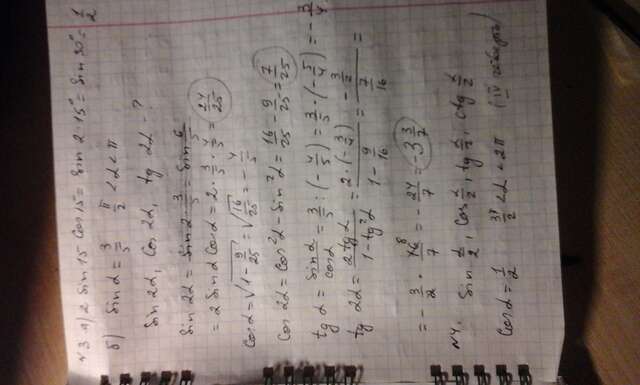 №3 а) 2 sin 15° cos 15° = sin 2·15° = sin 30° = 1/2
б) sin α = 3/5   π/2 < α < π
sin 2α, cos 2α, tg 2α - ?
sin 2α = sin 2 · 3/5 = sin 6/5
= 2 sin α cos α = 2 · 3/5 · 4/5 = 24/25
cos α = √(1 - 9/25) = √(16/25) = - 4/5
cos 2α = cos² α - sin² α = 16/25 - 9/25 = 7/25
tg α = sin α / cos α = 3/5 : (- 4/5) = 3/5 · (- 5/4) = - 3/4
tg 2α = 2 tg α / (1 - tg² α) = 2 · (- 3/4) / (1 - 9/16) = - 3/2 / 7/16 =
= - 3/2 · 16/7 = - 24/7 = -3 3/7
№4. sin α/2, cos α/2, tg α/2, ctg α/2
cos α = 1/2   3π/2 < α < 2π   (IV четверть)